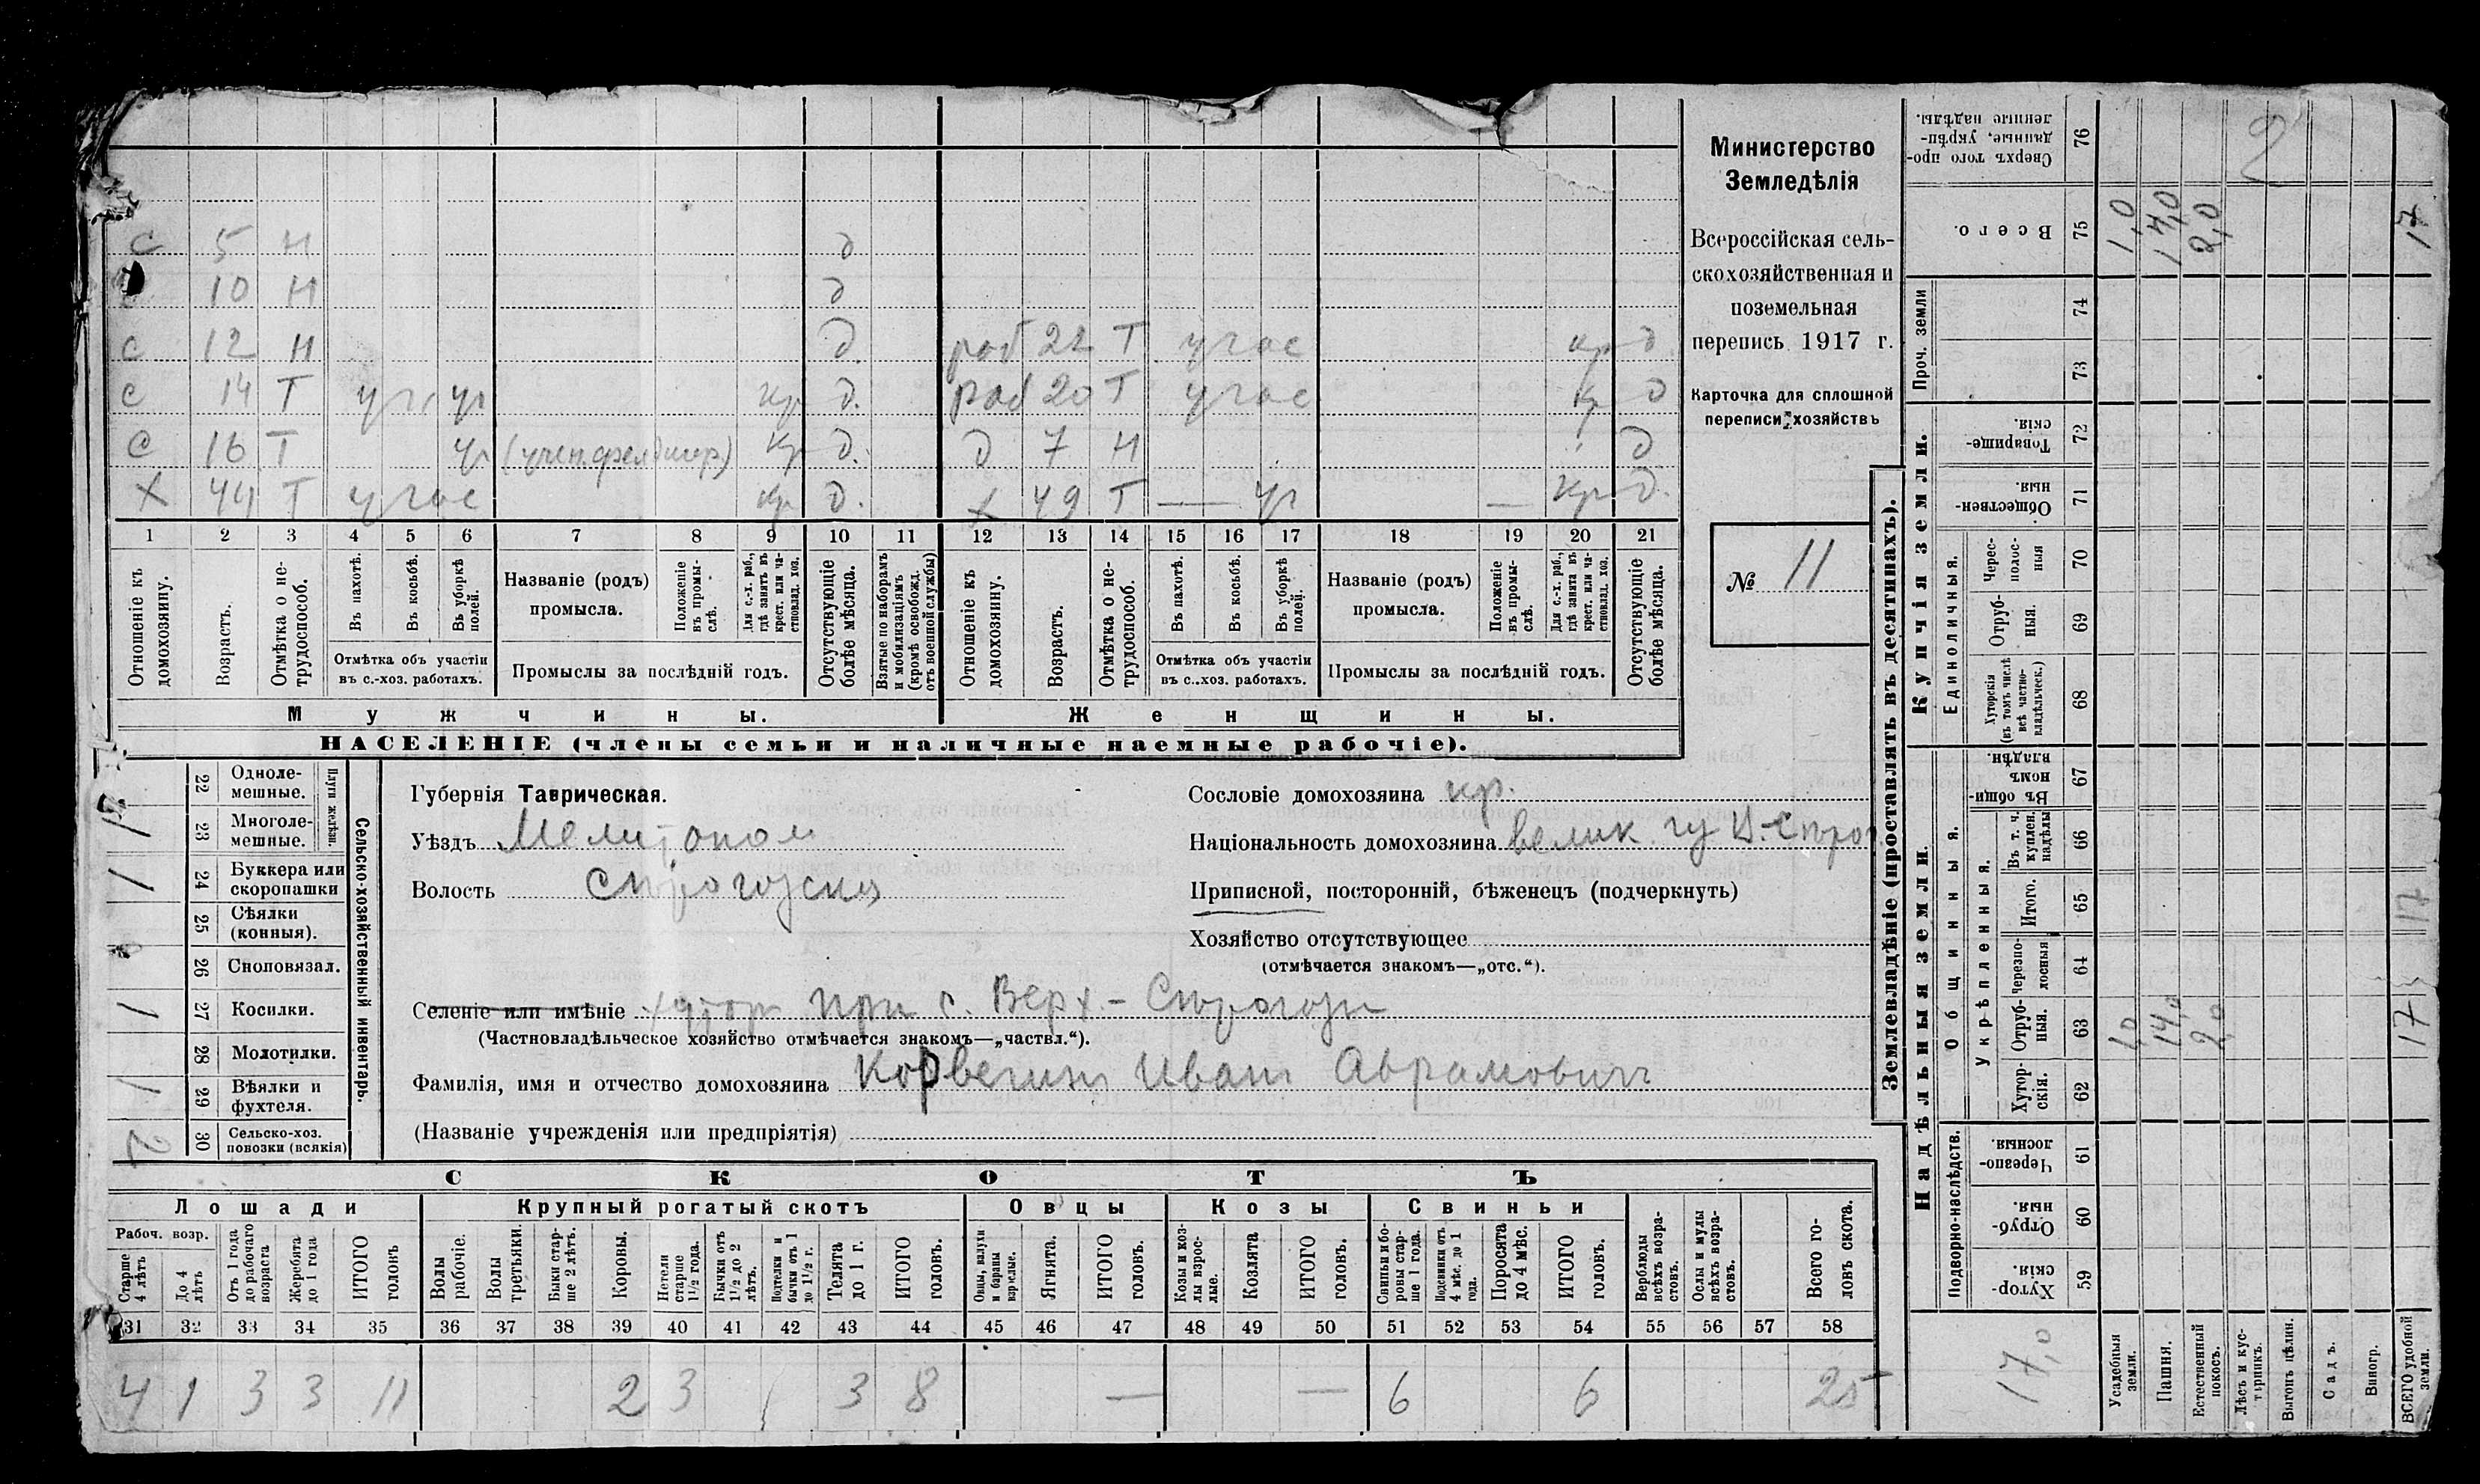 с 5 Н д
10 Н д
с 12 Н д. раб 22 Т у г ос кр д
с 14 Т кр д. раб 20 Т у г ос кр д
с 16 Т уг (учен. фельдшер) кр д. д 7 Н д
х 44 Т у г ос кр д. х 49 Т — уг — кр д.
1 2 3 4 5 6 7 8 9 10 11 12 13 14 15 16 17 18 19 20 21
Отношеніе къ домохозяину.
Возрастъ.
Отмѣтка о не-трудоспособ.
Въ пахотѣ.
Въ косьбѣ.
Въ уборкѣ полей.
Отмѣтка объ участіи
въ с.-хоз. работахъ.
Названіе (родъ)
промысла.
Положеніе въ промы-слѣ.
Для с.-х. раб., гдѣ занятъ въ крест. или ча-стновлад. хоз.
Промыслы за послѣдній годъ.
Отсутствующіе болѣе мѣсяца.
Взятые по наборамъ и мобилизаціямъ (кромѣ освобожд. отъ военной службы)
Отношеніе къ домохозяину.
Возрастъ.
Отмѣтка о не-трудоспособ.
Въ пахотѣ.
Въ косьбѣ.
Въ уборкѣ полей.
Отмѣтка объ участіи
въ с..хоз. работахъ.
Названіе (родъ)
промысла.
Положеніе въ промы-слѣ.
Для с.-х. раб., гдѣ занята въ крест. или ча-стновлад. хоз.
Промыслы за послѣдній годъ.
Отсутствующіе болѣе мѣсяца.
Мужчины.
Женщины.
НАСЕЛЕНІЕ (члены семьи и наличные наемные рабочіе).
Министерство
Земледѣлія
Всероссійская сель-
скохозяйственная и
поземельная
перепись 1917 г.
Карточка для сплошной
переписи хозяйствъ
№ 11
Сельско-хозяйственный инвентарь.
Плуги желѣзн.
22 Одноле-мешные.
1 23 Многоле-мешные.
1 24 Буккера или скоропашки
25 Сѣялки (конныя).
26 Сноповязал.
1 27 Косилки.
28 Молотилки.
1 29 Вѣялки и фухтеля.
2 30 Сельско-хоз. повозки (всякія)
Губернія Таврическая.
Уѣздъ Мелитопол
Волость Сирогозская
Селеніе или имѣніе хутор при с. Верх.-Сирогозы
(Частновладѣльческое хозяйство отмѣчается знакомъ—„частвл.“).
Фамилія, имя и отчество домохозяина Корвегин Иван Аврамович
(Названіе учрежденія или предпріятія)
Сословіе домохозяина кр.
Національность домохозяина велик.
Приписной, посторонній, бѣженецъ (подчеркнуть)
Хозяйство отсутствующее
(отмѣчается знакомъ—„отс.“).
СКОТЪ
Лошади Крупный рогатый скотъ Овцы Козы Свиньи
Рабоч. возр.
Старше 4 лѣтъ
До 4 лѣтъ
Отъ 1 года до рабочаго возраста
Жеребята до 1 года
ИТОГО головъ
Волы рабочіе.
Волы третьяки.
Быки стар-ше 2 лѣтъ.
Коровы.
Нетели старше 1½ года.
Бычки отъ 1½ до 2 лѣтъ.
Подтелки и бычки отъ 1 до 1½ г.
Телята до 1 г.
ИТОГО головъ.
Овцы, валухи и бараны взрослые.
Ягнята.
ИТОГО головъ.
Козы и коз-лы взрос-лые.
Козлята
ИТОГО головъ.
Свиньи и бо-ровы стар-ше 1 года.
Подсвинки отъ 4 мѣс. до 1 года.
Поросята до 4 мѣс.
ИТОГО головъ.
Верблюды всѣхъ возра-стовъ.
Ослы и мулы всѣхъ возра-стовъ.
Всего го-ловъ скота.
31 32 33 34 35 36 37 38 39 40 41 42 43 44 45 46 47 48 49 50 51 52 53 54 55 56 57 58
4 1 3 3 11 2 3 3 8 — — 6 6 25
Землевладѣніе (проставлять въ десятинахъ).
Надѣльныя земли.
Купчія земли.
Подворно-наслѣдств.
Общинныя.
Укрѣпленныя.
Единоличныя.
Проч. земли
Сверхъ того про-данные, укрѣп-ленные надѣлы. 76 2
Всего. 75 1,0 14,0 2,0 17
74
73
Товарище-скія. 72
Обществен-ныя. 71
Черес-полос-ныя 70
Отруб-ныя. 69
Хуторскія (въ томъ числѣ всѣ частно-владѣльческ.) 68
Въ общи-номъ владѣн. 67
Въ т. ч. куплен. надѣлы 66
Итого. 65 17
Черезпо-лосныя 64
Отруб-ныя. 63 1,0 14,0 2,0 17
Хутор-скія. 62
Черезпо-лосныя. 61
Отруб-ныя. 60
Хутор-скія. 59
17,0
Усадебныя земли.
Пашня.
Естественный покосъ.
Лѣсъ и кус-тарникъ.
Выгонъ цѣлин.
Садъ.
Виногр.
ВСЕГО удобной земли.